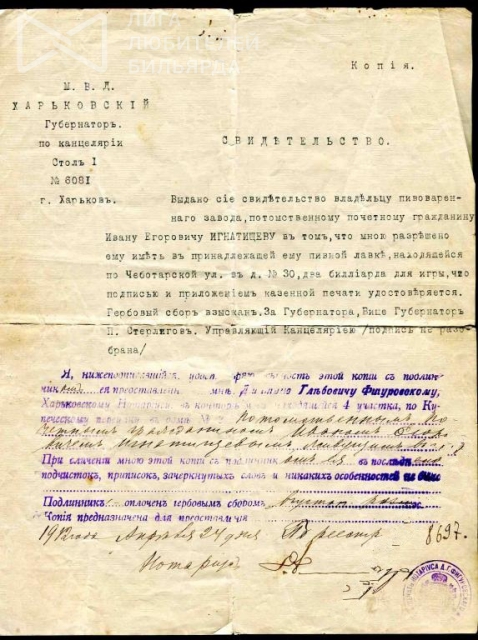 ЛИГА
ЛЮБИТЕЛЕЙ
БИЛЬЯРДА
Копія.
М. В. Д.
ХАРЬКОВСКІЙ
Губернаторъ.
по канцеляріи
Столъ 1
№ 6081
г. Харьковъ.
СВИДѢТЕЛЬСТВО.
Выдано сіе свидѣтельство владѣльцу пивоварен-
наго завода, потомственному почетному гражданину
Ивану Егоровичу ИГНАТИЩЕВУ въ томъ, что мною разрѣшено
ему имѣть въ принадлежащей ему пивной лавкѣ, находящейся
по Чеботарской ул. въ д. № 30, два билліарда для игры, что
подписью и приложеніемъ казенной печати удостовѣряется.
Гербовый сборъ взысканъ. За Губернатора, Вице Губернаторъ
П. Стерлиговъ. Управляющій Канцеляріею /подпись не разо-
брана/
Я, нижеподписавшійся, вѣрность этой копіи съ подлин-
никомъ ея представленнымъ мнѣ, Даніилу Глѣбовичу Фигуровскому,
Харьковскому Нотаріусу, въ конторѣ 4 участка, по Ку-
печескому Потомственнымъ По
четнымъ Иваномъ Его
ровичемъ Игнатищевымъ
При сличеніи мною этой копіи съ подлинникомъ въ послѣднемъ
подчистокъ, приписокъ, зачеркнутыхъ словъ и никакихъ особенностей не было
Подлинникъ оплоченъ гербовымъ сборомъ
Копія предназначена для представленія
1912 года Апрѣля 24 дня По реестру 8697.
Нотаріусъ
НОТАРІУСА Д. Г. ФИГУРОВСКАГО